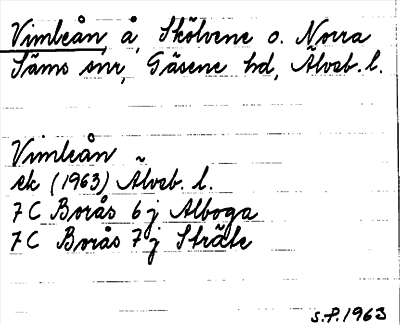 Vimleån, å, Skölvene o. Norra
Säms snr, Gäsene hd, Älvsb. l.
Vimleån
ek (1963) Älvsb. l.
7 C Borås 6 j Alboga
7 C Borås 7 j Stråle
S.P. 1963